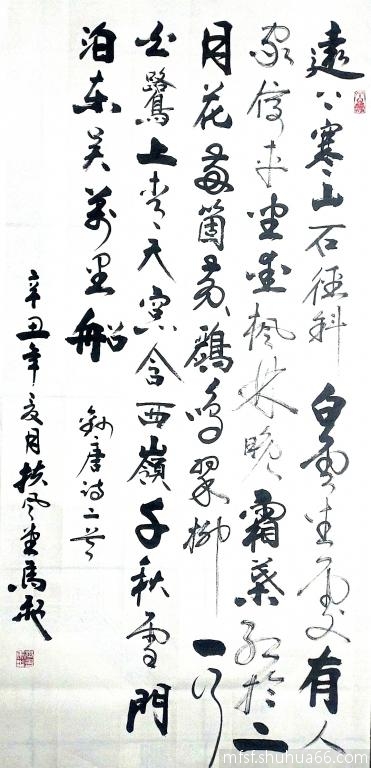 遠上寒山石徑斜白雲生處有人
家停車坐愛楓林晚霜葉紅於二
月花兩箇黃鸝鳴翠柳一行
白鷺上青天窗含西嶺千秋雪門
泊東吳萬里船
唐诗二首
辛丑年夏月扶风堂馬
mfsf.shuhua66.com